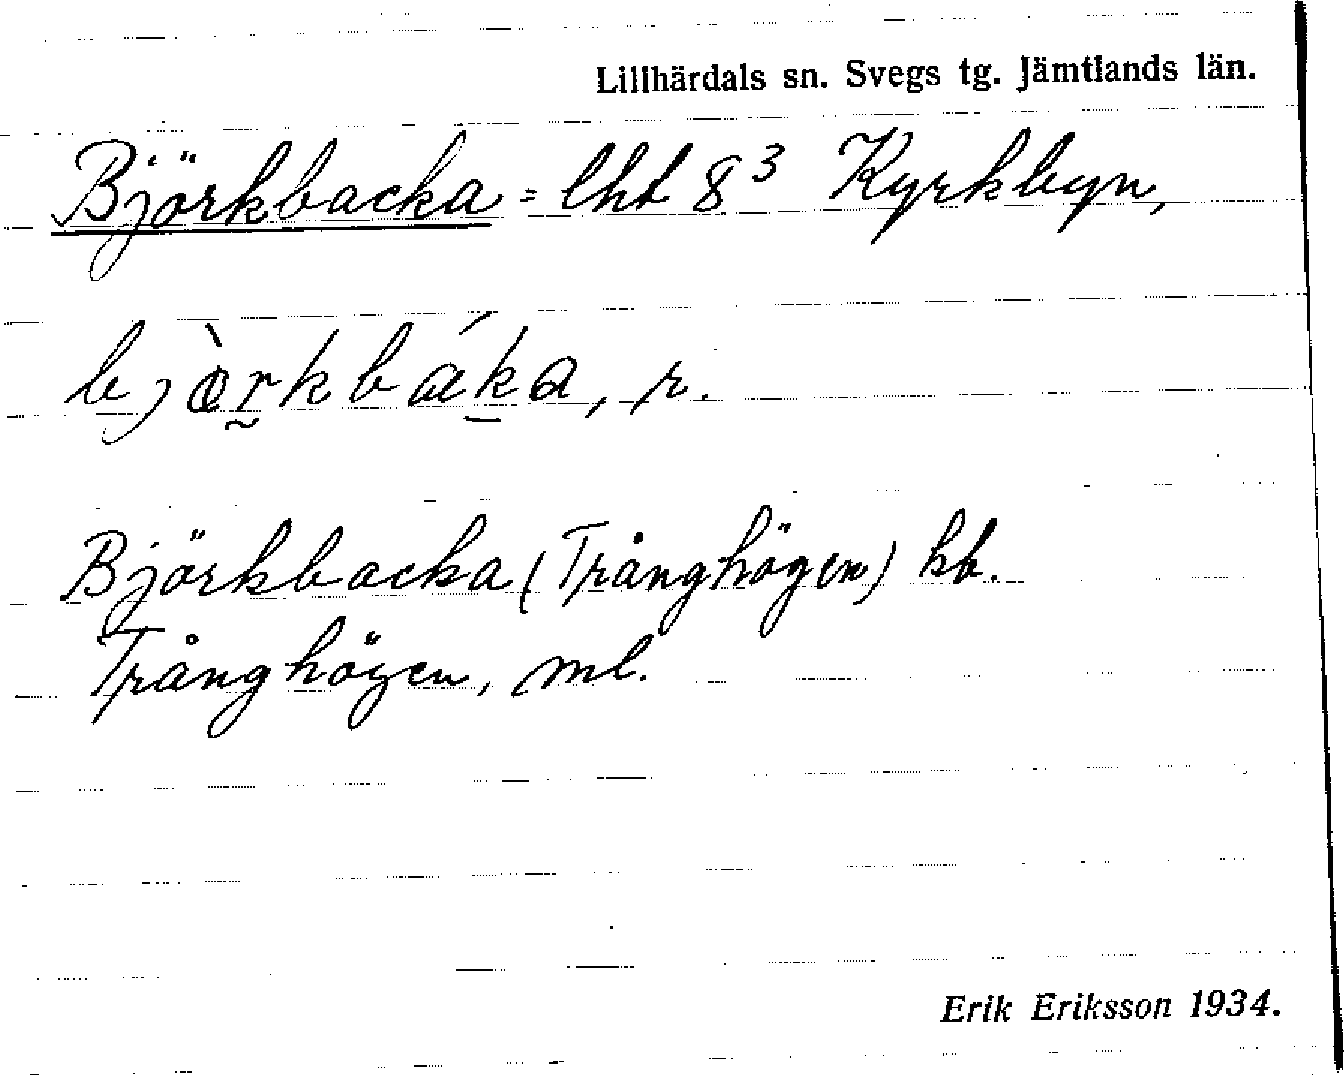 Lillhärdals sn. Svegs tg. Jämtlands län.
Björkbacka = lht 8³ Kyrkbyn,
bjòr̰kbáḵa, r.
Björkbacka (Trånghögen) kb.
Trånghögen, ml.
Erik Eriksson 1934.